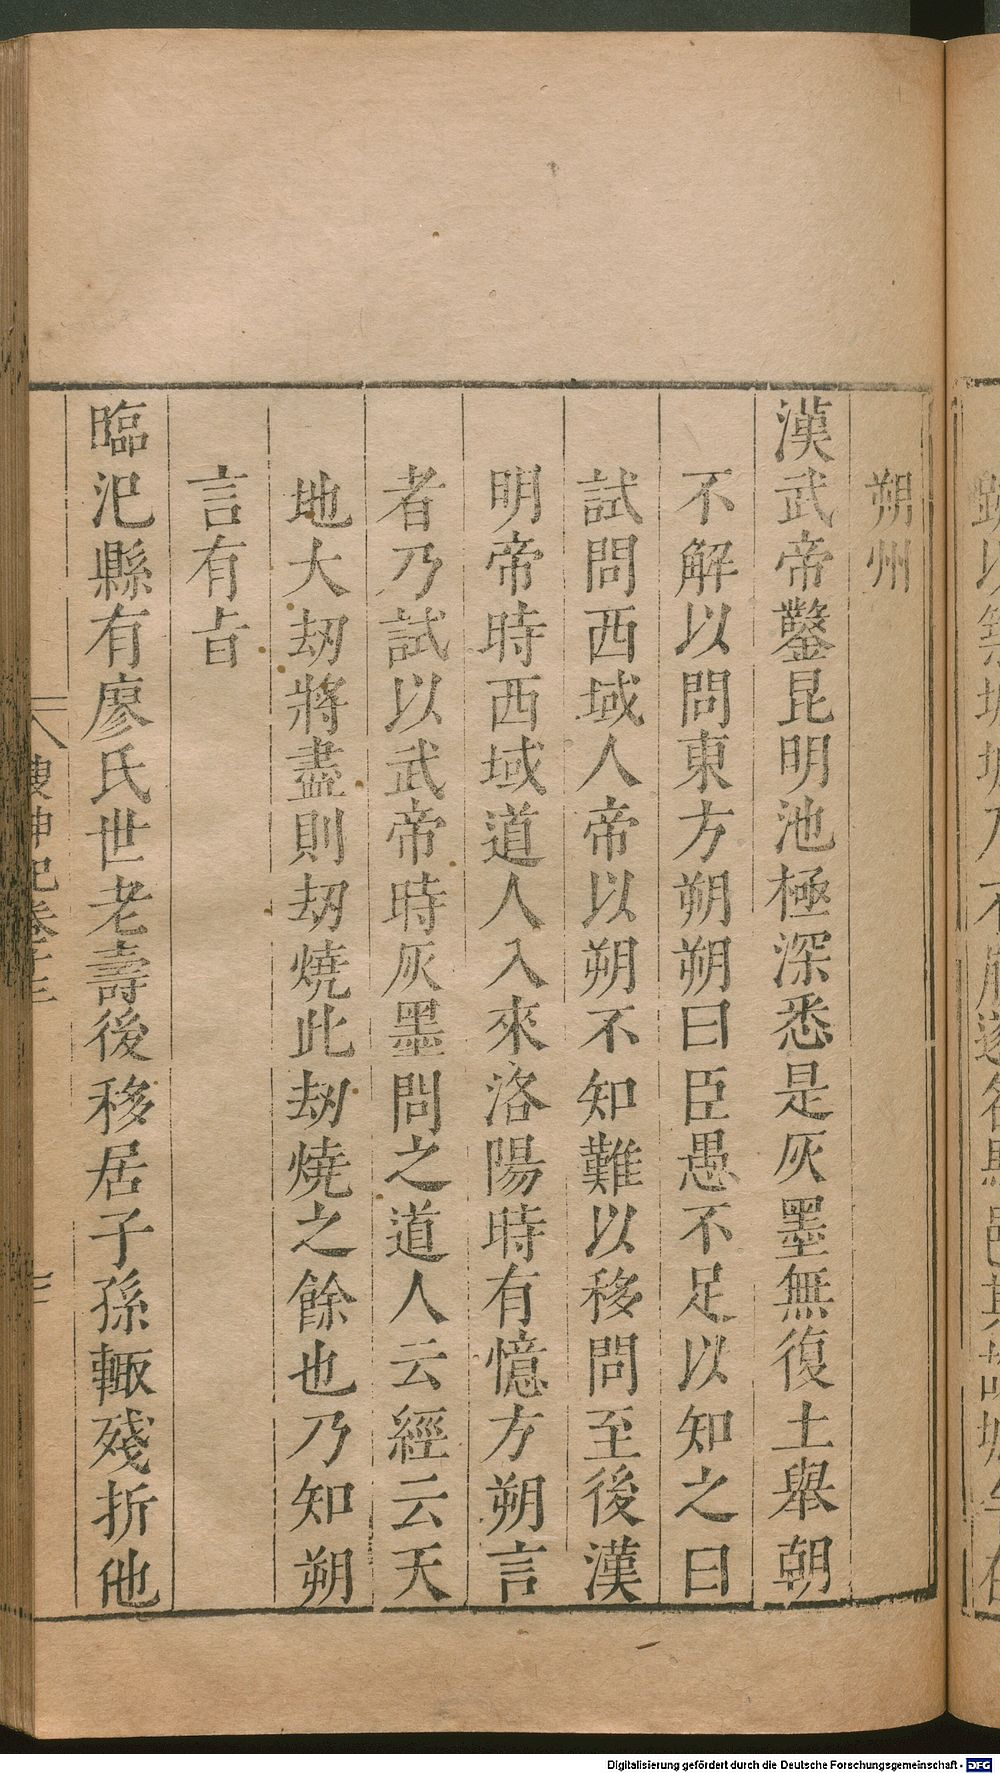 朔州
漢武帝鑿昆明池極深悉是灰墨無復土舉朝
不解以問東方朔朔曰臣愚不足以知之曰
試問西域人帝以朔不知難以移問至後漢
明帝時西域道人入來洛陽時有憶方朔言
者乃試以武帝時灰墨問之道人云經云天
地大刼將盡則刼燒此刼燒之餘也乃知朔
言有㫖
臨汜縣有廖氏世老壽後移居子孫輙殘折他
搜神記卷十三
三
Digitalisierung gefördert durch die Deutsche Forschungsgemeinschaft - DFG